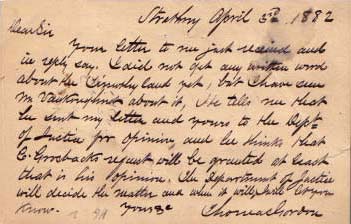 Strathroy April 5th 1882
Dear Sir
Your letter to me just received and
in reply say. I did not get any written word
about the land yet, but I have seen
Mr about it, He tells me that
he sent my letter and yours to the Dept
of Justice for opinion, and he thinks that
G. Grosbacks request will be granted at least
that is his opinion. The Department of Justice
will decide the matter and when it will I will let you
know. Yours &c
Thomas Gordon